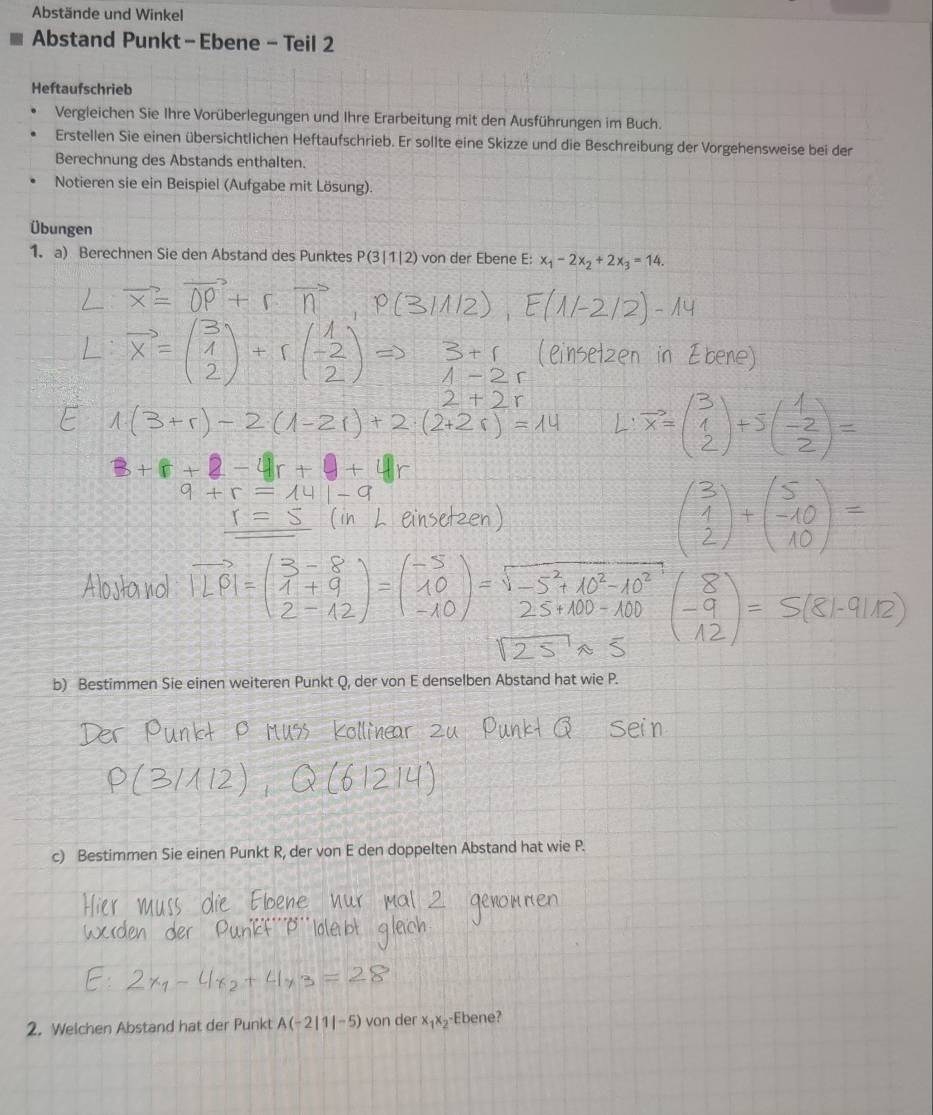 Abstände und Winkel
Abstand Punkt – Ebene – Teil 2
Heftaufschrieb
• Vergleichen Sie Ihre Vorüberlegungen und Ihre Erarbeitung mit den Ausführungen im Buch.
• Erstellen Sie einen übersichtlichen Heftaufschrieb. Er sollte eine Skizze und die Beschreibung der Vorgehensweise bei der
Berechnung des Abstands enthalten.
• Notieren sie ein Beispiel (Aufgabe mit Lösung).
Übungen
1. a) Berechnen Sie den Abstand des Punktes P(3|1|2) von der Ebene E: x₁ − 2x₂ + 2x₃ = 14.
L: x⃗ = OP⃗ + r n⃗, P(3|1|2), E(1|-2|2) - 14
L: x⃗ = (3 1 2) + r (1 -2 2) => 3 + r (einsetzen in Ebene)
1 - 2r
2 + 2r
E 1·(3+r) - 2(1-2r) + 2·(2+2r) = 14
3 + r + 2 - 4r + 4 + 4r
9 + r = 14 | - 9
r = 5 (in L einsetzen)
L: x⃗ = (3 1 2) + 5 (1 -2 2) =
(3 1 2) + (5 -10 10) =
(8 -9 12) = S(8|-9|12)
Abstand: |LP⃗| = (3 - 8 1 + 9 2 - 12) = (-5 10 -10) = √-5² + 10² - 10²
25 + 100 - 100
√25 ≈ 5
b) Bestimmen Sie einen weiteren Punkt Q, der von E denselben Abstand hat wie P.
Der Punkt P muss kollinear zu Punkt Q sein
P(3|1|2), Q(6|2|4)
c) Bestimmen Sie einen Punkt R, der von E den doppelten Abstand hat wie P.
Hier muss die Ebene nur mal 2 genommen
werden der Punkt P bleibt gleich
E: 2x₁ - 4x₂ + 4x₃ = 28
2. Welchen Abstand hat der Punkt A(−2|1|−5) von der x₁x₂-Ebene?